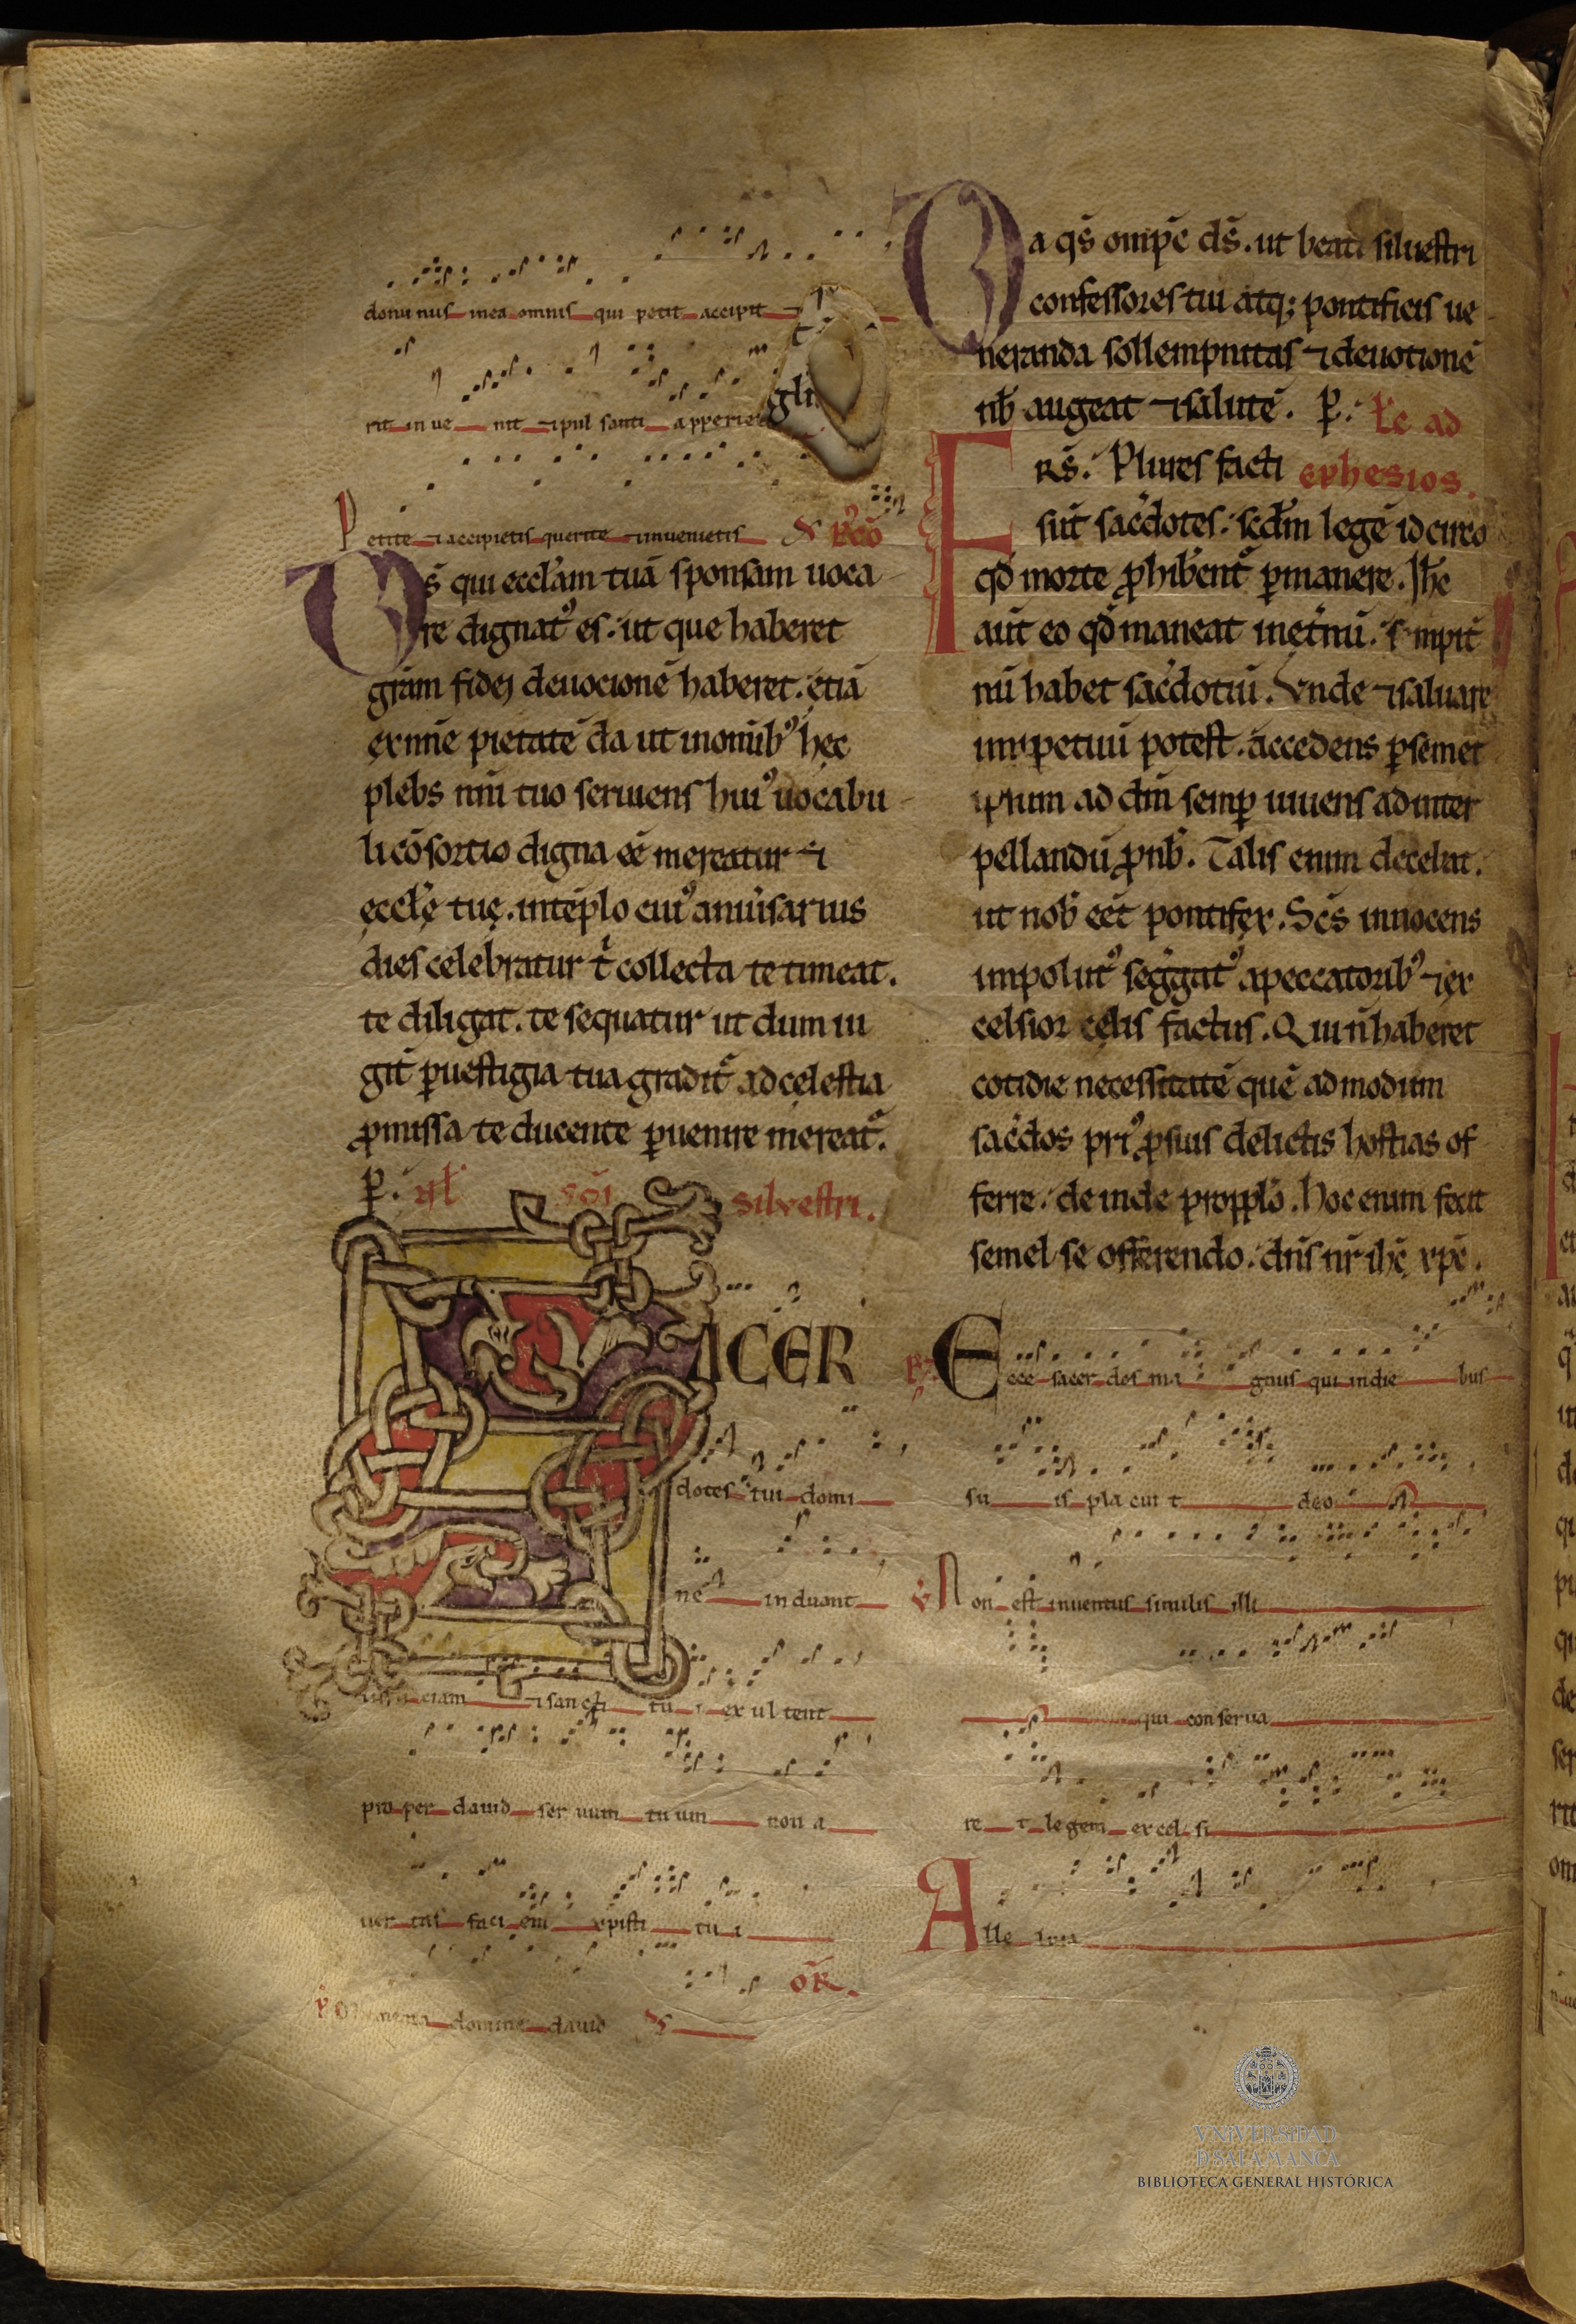 domus mea omnis qui petit accipit ⁊
gli
rit in ue nit ⁊ pul santi apperie
Petite ⁊ accipietis querite ⁊ inuenietis
Ds̄ qui eccl̓am tuā sponsam uoca
re dignatꝰ es. ut que haberet
grām fidei deuocionē haberet. etiā
ex nn̄e pietatē da ut in om̄ibꝰ hęc
plebs nn̄i tuo seruiens huiꝰ uocabu
li cōsortio digna eē mereatur ⁊
ęccl̓ę tuę. in tēplo cuiꝰ anniu̓sarius
dies celebratur t̓ collecta te timeat.
te diligat. te sequatur ut dum iu
git̓ ꝑ uestigia tua gradit᷑ ad cęlestia
ꝓmissa te ducente ꝑuenire mereat᷑.
ꝑ. sc̄i siluestri.
SACER
dotes tui domi
ne induant
iusticiam ⁊ sancti tu i ex ul tent
propter dauid seruum tuum non a
uer tas faci em xpisti tu i
oR̄.
memento domine dauid
Da qs̄ om̄ps̄ ds̄. ut beati siluestri
confessores tui atq; pontificis ue
neranda sollempnitas ⁊ deuotionē
nb̄ augeat ⁊ salutē. ꝑ. Lc̄ ad
ephesios.
FRS̄. Plures facti
sūt sac̓dotes. sc̄dm legē idcirco
qđ morte ꝓhibent᷑ ꝑmanere. Ih̄c
aūt eo qđ maneat inet̓nū. sempit̓
nū habet sac̓dotiū. Vnde ⁊ saluare
inꝑpetuū potest. accedens ꝑ semet
ipsum ad dm̄ semꝑ uiuens ad inter
pellandū ꝓ nb̄. Talis enim decebat.
ut nob̄ eēt pontifex. Sc̄s innocens
impolutꝰ seg̓gatꝰ a peccatoribꝰ ⁊ ex
celsior cęlis factus. Qui n̄ haberet
cotidie necessitatē quē ad modum
sac̓dos priꝰ ꝓ suis delictis hostias of
ferre. deinde pro ppl̓o. hoc enim fecit
semel se offerendo. dn̄s nr̄ ih̄c xp̄c.
R̄ Ecce sacer dos ma gnus qui indie bus
su is pla cui t deo
V̄ Non est inuentus similis illi
qui conserua
re t legem excel si
Alle luia
VNIVERSIDAD
D SALAMANCA
BIBLIOTECA GENERAL HISTÓRICA